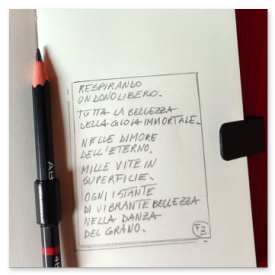 RESPIRANDO
UN DONO LIBERO.
TUTTA LA BELLEZZA
DELLA GIOIA IMMORTALE.
NELLE DIMORE
DELL'ETERNO.
MILLE VITE IN
SUPERFICIE.
OGNI ISTANTE
DI VIBRANTE BELLEZZA
NELLA DANZA
DEL GRANO.